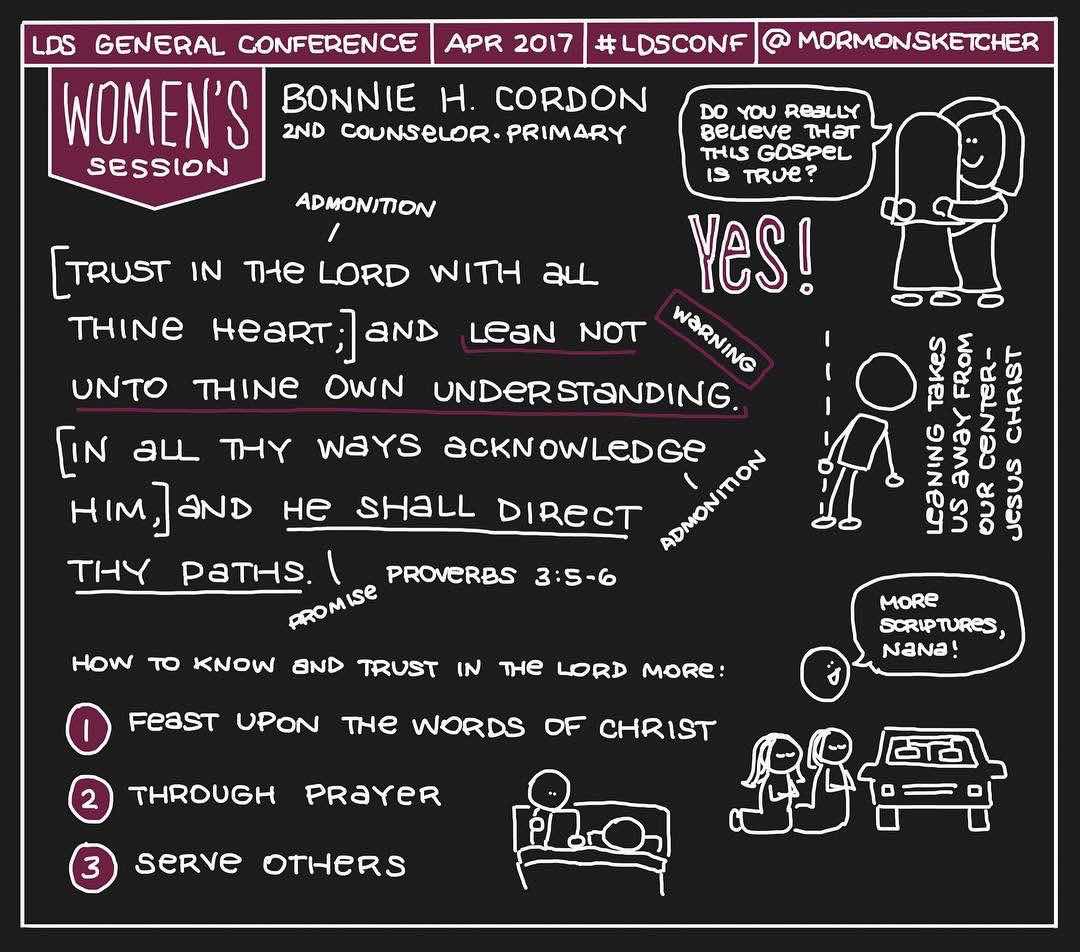 LDS GENERAL CONFERENCE APR 2017 #LDSCONF @MORMONSKETCHER
WOMEN'S
SESSION
BONNIE H. CORDON
2ND COUNSELOR. PRIMARY
DO YOU REALLY
BELIEVE THAT
THIS GOSPEL
IS TRUE?
YES!
ADMONITION
[TRUST IN THE LORD WITH ALL
THINE HEART;] AND LEAN NOT
WARNING
UNTO THINE OWN UNDERSTANDING.
[IN ALL THY WAYS ACKNOWLEDGE
HIM,] AND HE SHALL DIRECT
ADMONITION
THY PATHS.
PROMISE
PROVERBS 3:5-6
LEANING TAKES
US AWAY FROM
OUR CENTER-
JESUS CHRIST
MORE
SCRIPTURES,
NANA!
HOW TO KNOW AND TRUST IN THE LORD MORE:
1 FEAST UPON THE WORDS OF CHRIST
2 THROUGH PRAYER
3 SERVE OTHERS